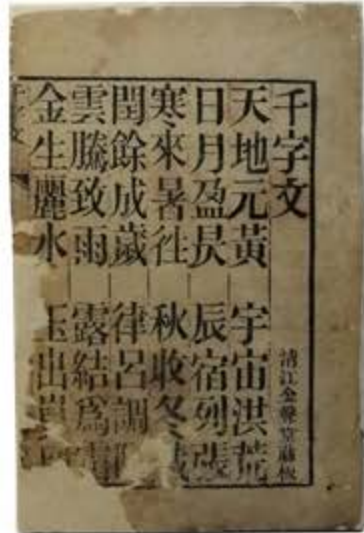 千字文 清江金聲堂藏板
天地元黃 宇宙洪荒
日月盈昃 辰宿列張
寒來暑徃 秋收冬藏
閏餘成歲 律呂調
雲騰致雨 露結爲
金生麗水 玉出崑